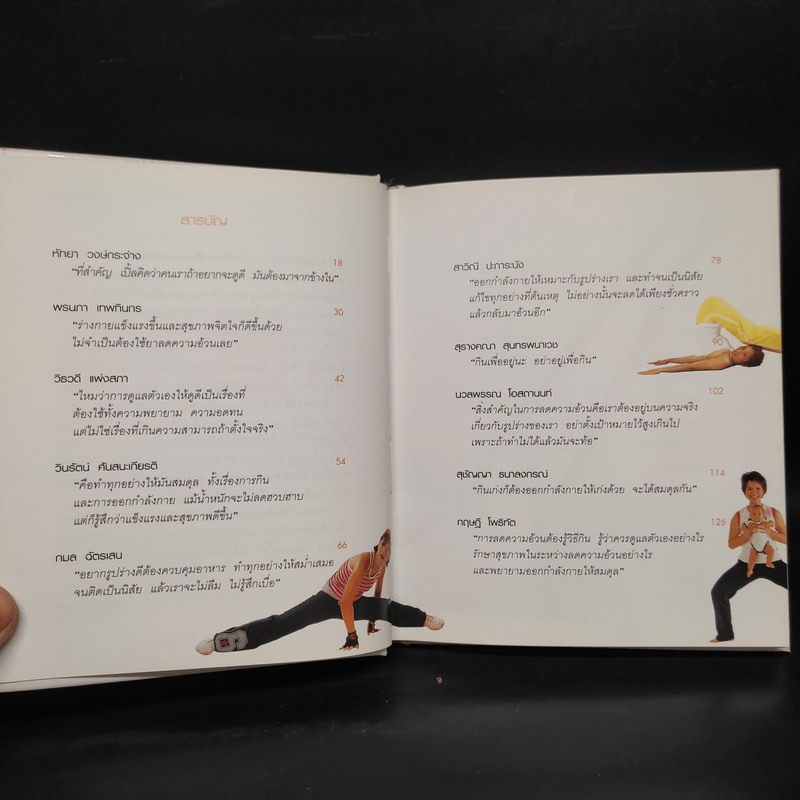 สารบัญ
หัทยา วงษ์กระจ่าง 18
“ที่สำคัญ เปิ้ลคิดว่าคนเราถ้าอยากจะดูดี มันต้องมาจากข้างใน”
พรนภา เทพทินกร 30
“ร่างกายแข็งแรงขึ้นและสุขภาพจิตใจก็ดีขึ้นด้วย
ไม่จำเป็นต้องใช้ยาลดความอ้วนเลย”
วิรวดี แฝงสภา 42
“ไหมว่าการดูแลตัวเองให้ดูดีเป็นเรื่องที่
ต้องใช้ทั้งความพยายาม ความอดทน
แต่ไม่ใช่เรื่องที่เกินความสามารถถ้าตั้งใจจริง”
วินรัตน์ คันสนะเกียรติ 54
“คือทำทุกอย่างให้มันสมดุล ทั้งเรื่องการกิน
และการออกกำลังกาย แม้น้ำหนักจะไม่ลดฮวบฮาบ
แต่ก็รู้สึกว่าแข็งแรงและสุขภาพดีขึ้น”
กมล ฉัตรเสน 66
“อยากรูปร่างดีต้องควบคุมอาหาร ทำทุกอย่างให้สม่ำเสมอ
จนติดเป็นนิสัย แล้วเราจะไม่ลืม ไม่รู้สึกเบื่อ”
สาวิณี ปะการะนัง 78
“ออกกำลังกายให้เหมาะกับรูปร่างเรา และทำจนเป็นนิสัย
แก้ไขทุกอย่างที่ต้นเหตุ ไม่อย่างนั้นจะลดได้เพียงชั่วคราว
แล้วกลับมาอ้วนอีก”
สุรางคณา สุนทรพนาเวช 90
“กินเพื่ออยู่นะ อย่าอยู่เพื่อกิน”
นวลพรรณ โอสถานนท์ 102
“สิ่งสำคัญในการลดความอ้วนคือเราต้องอยู่บนความจริง
เกี่ยวกับรูปร่างของเรา อย่าตั้งเป้าหมายไว้สูงเกินไป
เพราะถ้าทำไม่ได้แล้วมันจะท้อ”
สุชัญญา ธนาลงกรณ์ 114
“กินเก่งก็ต้องออกกำลังกายให้เก่งด้วย จะได้สมดุลกัน”
กฤษฎี โพธิทัต 126
“การลดความอ้วนต้องรู้วิธีกิน รู้ว่าควรดูแลตัวเองอย่างไร
รักษาสุขภาพในระหว่างลดความอ้วนอย่างไร
และพยายามออกกำลังกายให้สมดุล”